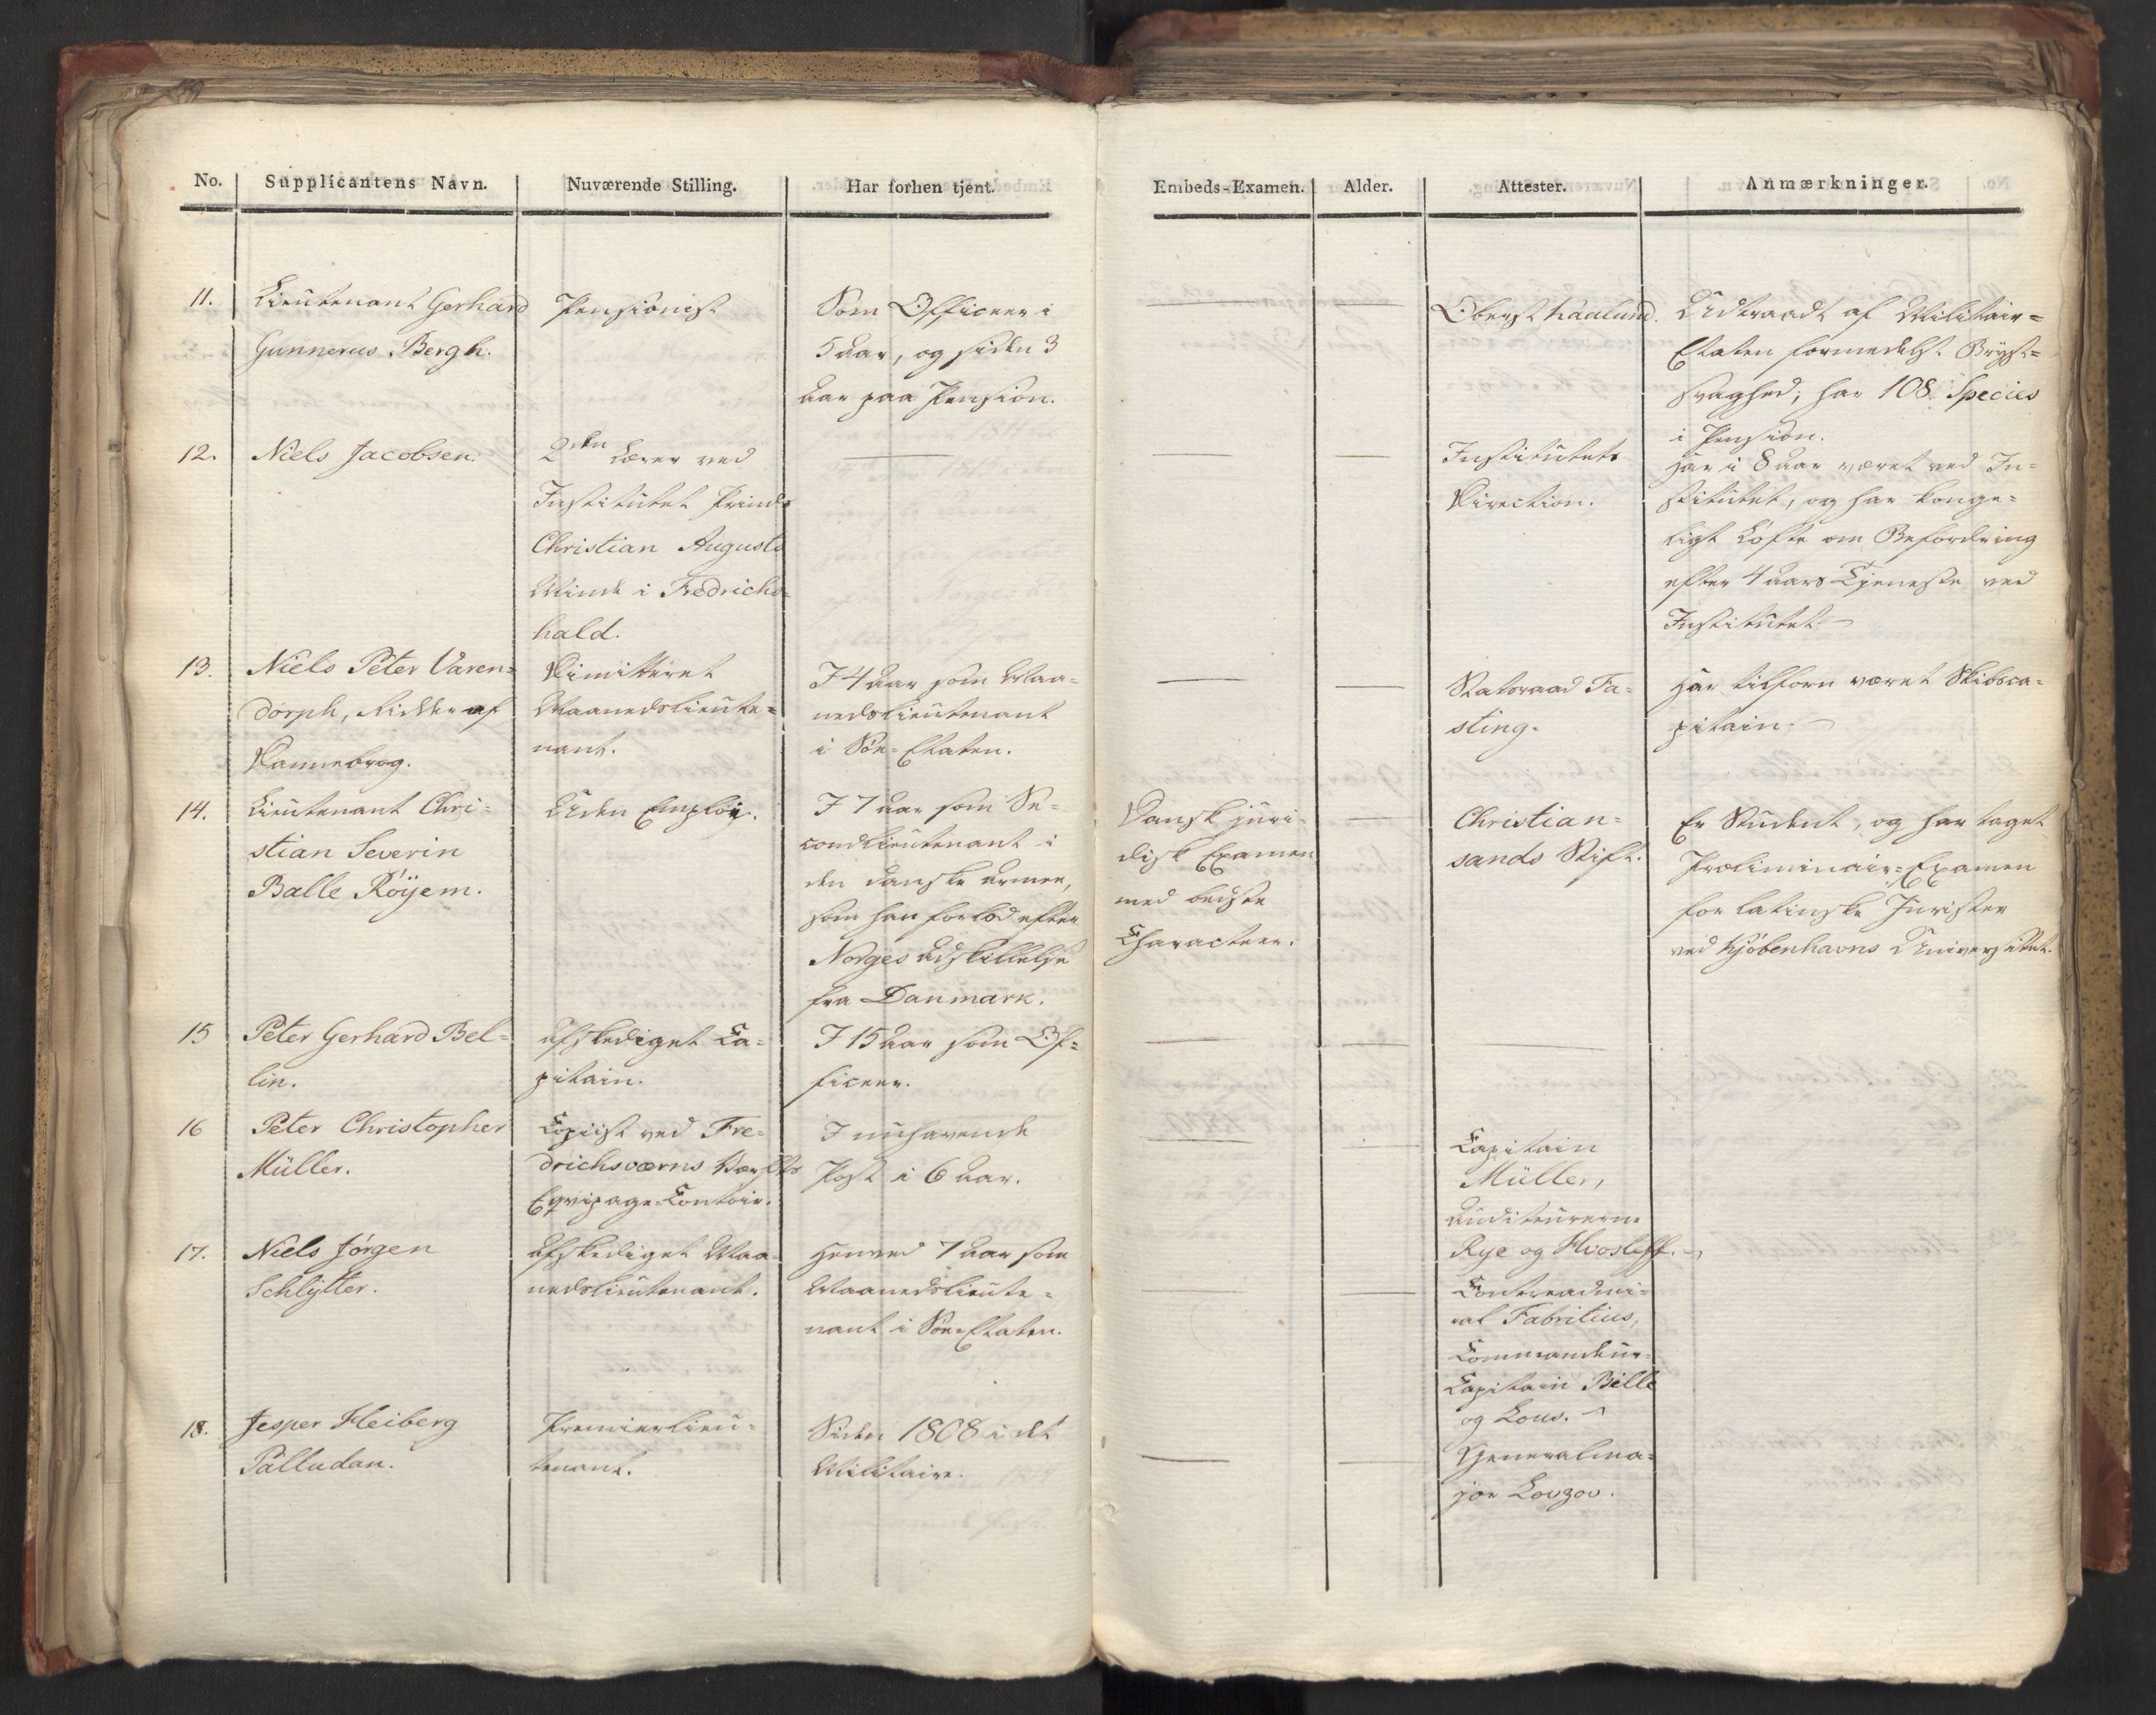 No.
Supplicantens Navn.
Nuværende Stilling.
Har forhen tjent.
Embeds-Examen.
Alder.
Attester.
Anmærkninger.
11.
Lieutenant Gerhard
Gunnerus Bergh.
Pensionist
Som Officeer i
5 Aar, og siden 3
Aar paa Pension.
Oberst Haalund.
Udtraadt af Militair=
Etaten formedelst Bryst=
svaghed; har 108 Species
i Pension.
12.
Niels Jacobsen.
2den Lærer ved
Institutet Prinds
Christian Augusts
Minde i Fredrichs=
hald.
Institutets
Direction.
Har i 8 Aar været ved In=
stitutet, og har konge=
ligt Løfte om Befordring
efter 4 Aars Tjeneste ved
Institutet.
13.
Niels Peter Varen=
dorph, Ridder af
Dannebrog.
Dimitteret
Maanedslieute=
nant.
I 4 Aar som Maa=
nedslieutenant
i Søe=Etaten.
Statsraad Fa=
sting.
Har tilforn været Skibsca=
pitain.
14.
Lieutenant Chri=
stian Severin
Balle Röyem.
Uden Emploi.
I 7 Aar som Se=
condlieutenant i
den danske Armee,
som han forlod efter
Norges Adskillelse
fra Danmark.
Dansk juri=
disk Examen
med bedste
Characteer.
Christian=
sands Stift.
Er Student, og har taget
Præliminair=Examen
for latinske Jurister
ved Kjøbenhavns Universitet.
15
Peter Gerhard Bel=
lin.
Afskediget Ca=
pitain.
I 15 Aar som Of=
ficeer.
16
Peter Christopher
Müller.
Copiist ved Fre=
drichsværns Værfts
Eqvipage=Contoir.
I nuhavende
Post i 6 Aar.
Capitain
Müller,
Auditeurerne
Rye og Hvosleff.
17.
Niels Jörgen
Schlytter.
Afskediget Maa=
nedslieutenant.
Henved 7 Aar som
Maanedslieute=
nant i Søe=Etaten.
Contreadmi=
ral Fabritius,
Commandeur=
Capitain Bille
og Lous.
18.
Jesper Heiberg
Palludan.
Premierlieu=
tenant.
Siden 1808 i det
Militaire.
Generalma=
jor Lovzov.